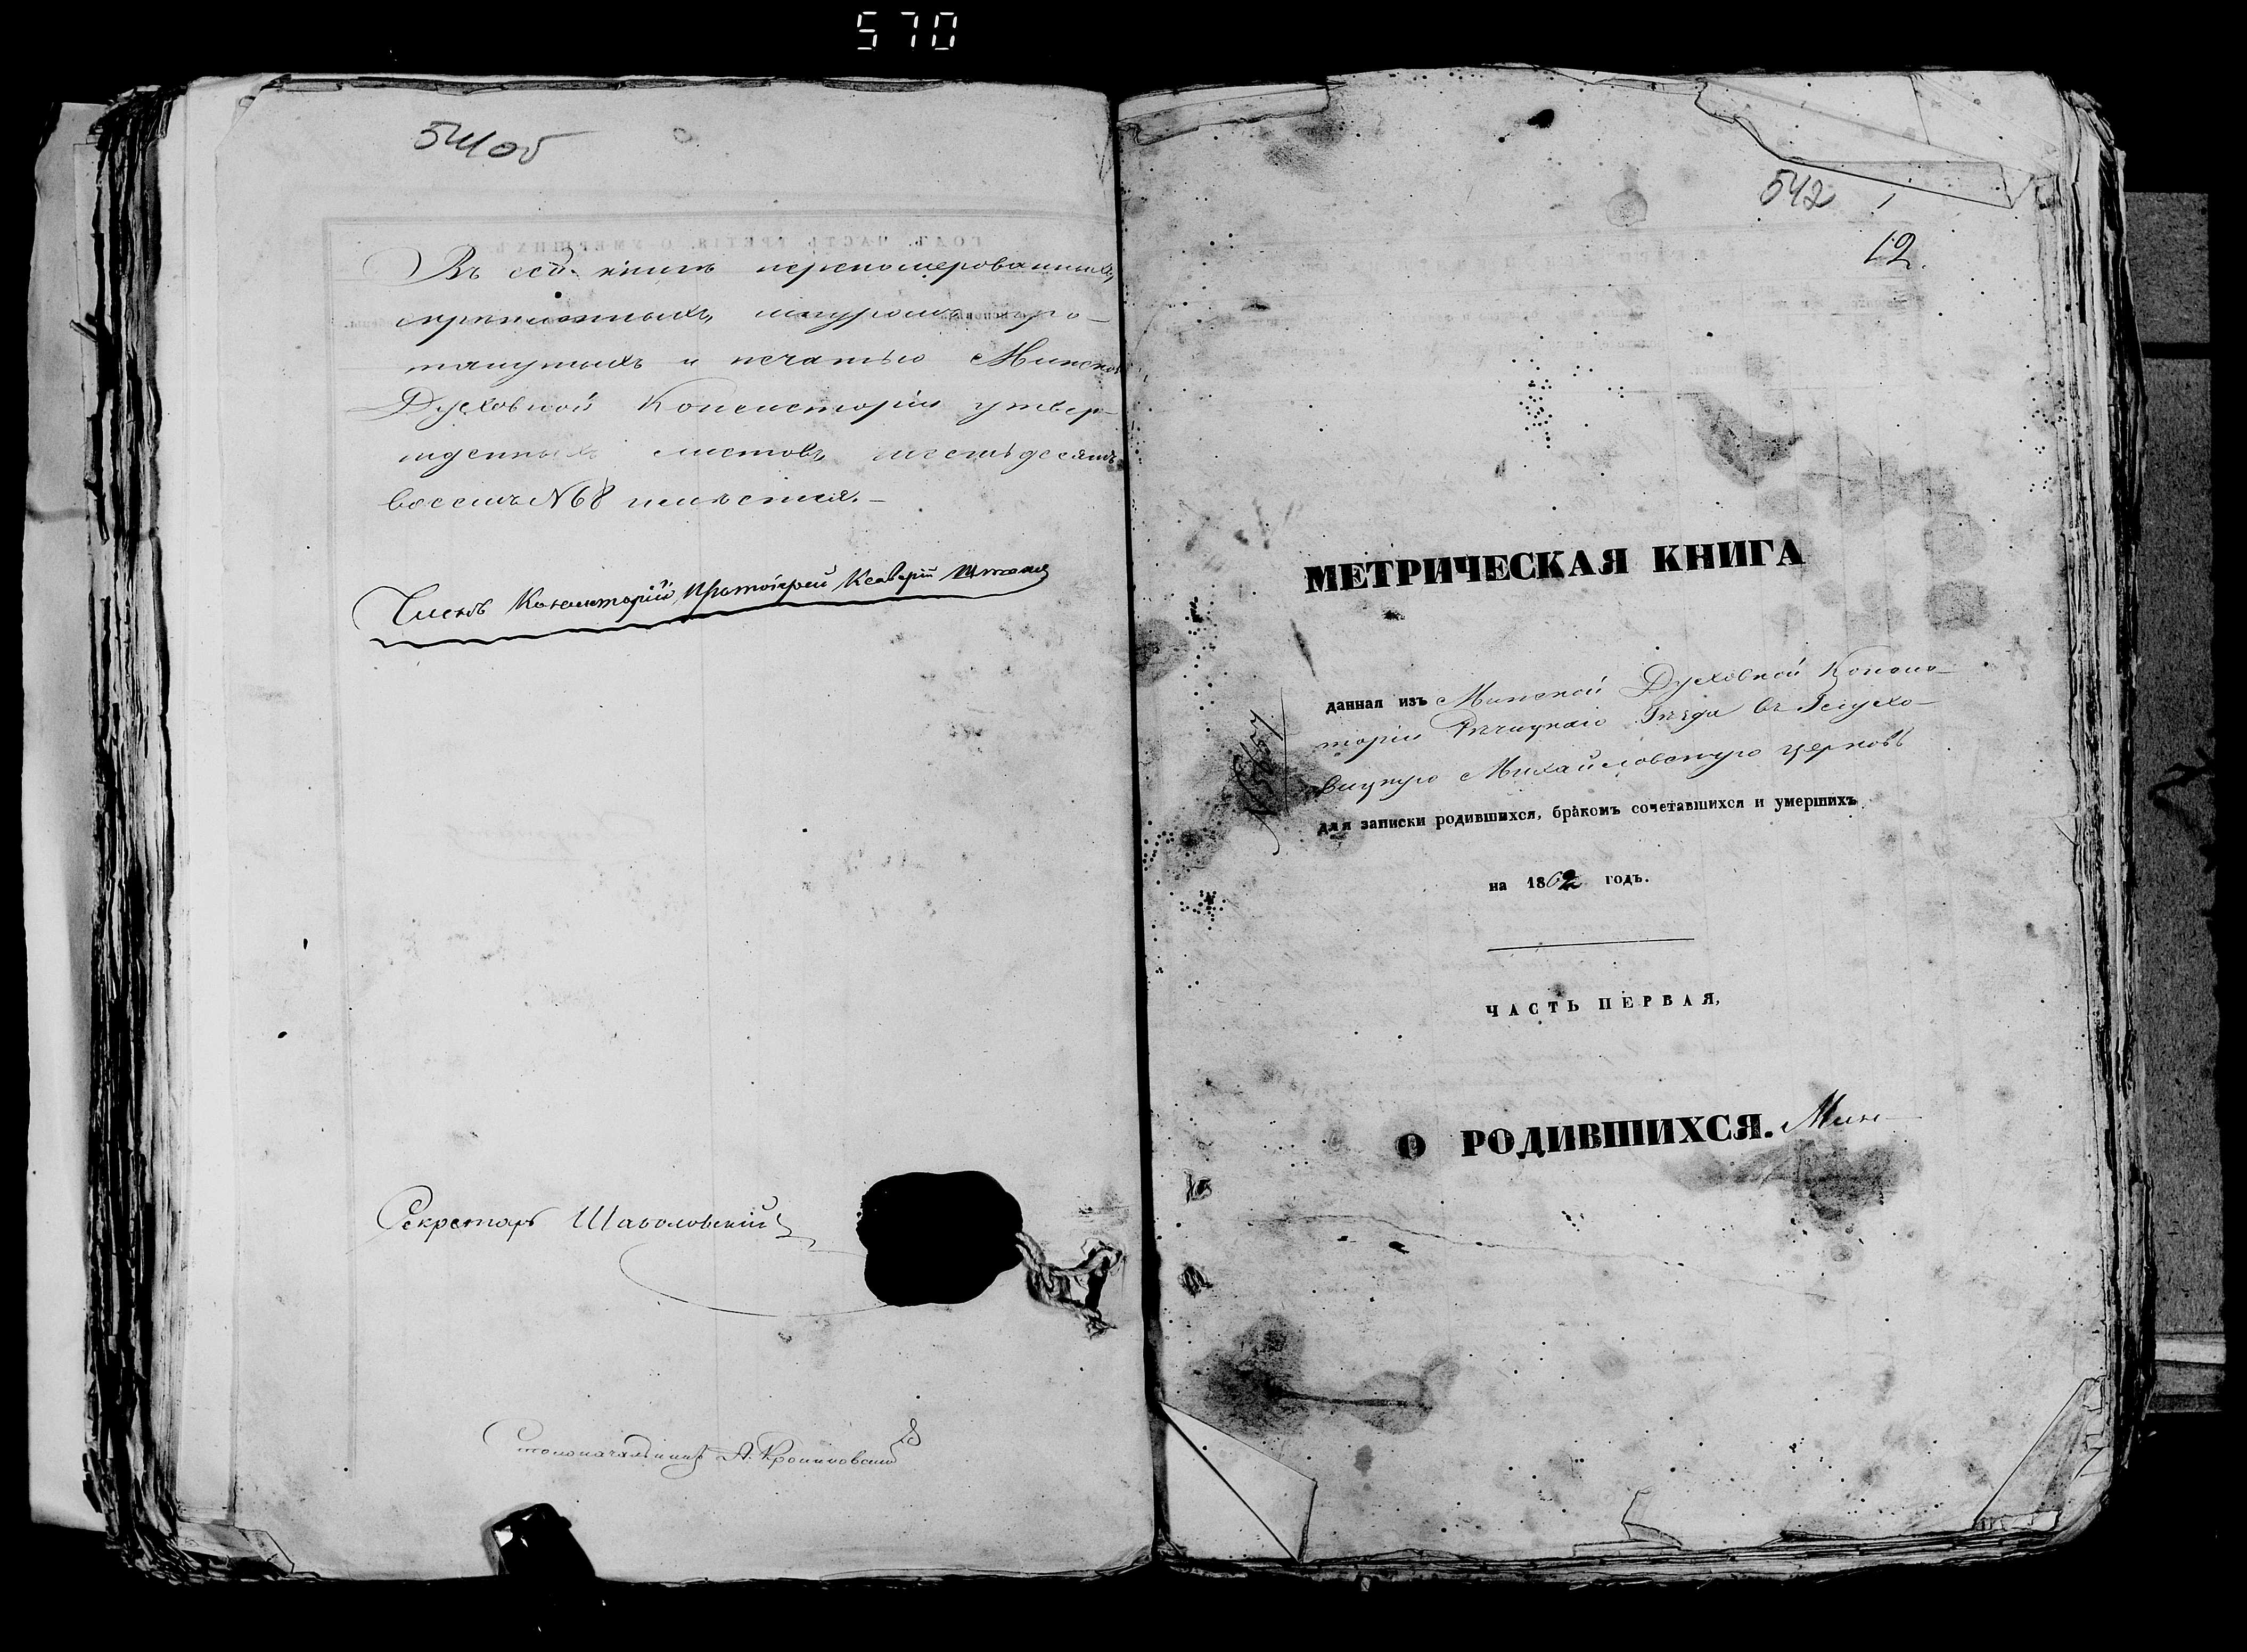 570
541об
Въ сей книгѣ перенумерованныхъ,
скрѣпленныхъ, шнуромъ про-
тянутыхъ и печатью Минской
Духовной Консисторіи утвер-
жденныхъ листовъ шестьдесятъ
восемь №68 имѣется.-
Членъ Консисторіи, Протоіерей Ксаверій
Секретарь
Столоначальникъ А.
542
12.
МЕТРИЧЕСКАЯ КНИГА
данная изъ Минской Духовной Консис-
торіи Рѣчицкаго Уѣзда въ
Михайловскую церковь
для записки родившихся, бракомъ сочетавшихся и умершихъ
на 1862 годъ.
ЧАСТЬ ПЕРВАЯ,
О РОДИВШИХСЯ. Мин